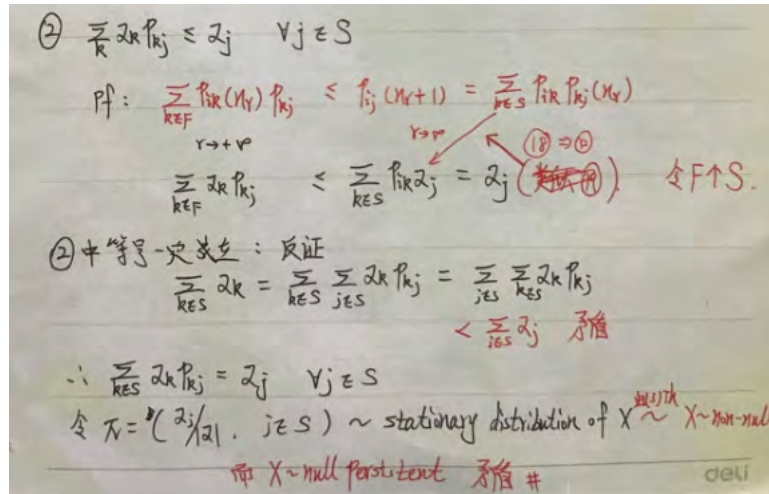 ② Σ_k α_k p_kj ≤ α_j ∀ j ∈ S
Pf: Σ_{k∈F} p_ik(n_r) p_kj ≤ p_ij(n_r+1) = Σ_{k∈S} p_ik p_kj(n_r)
r→+∞ r→∞ (18) ⇒ ②
Σ_{k∈F} α_k p_kj ≤ Σ_{k∈S} p_ik α_j = α_j ( ) 令F↑S.
②中"="号一定成立: 反证
Σ_{k∈S} α_k = Σ_{k∈S} Σ_{j∈S} α_k p_kj = Σ_{j∈S} Σ_{k∈S} α_k p_kj
< Σ_{j∈S} α_j 矛盾
∴ Σ_{k∈S} α_k p_kj = α_j ∀ j ∈ S
令 π = (α_j/α, j∈S) ~ stationary distribution of X ~ X~non-null
而 X~null persistent 矛盾 #
deli